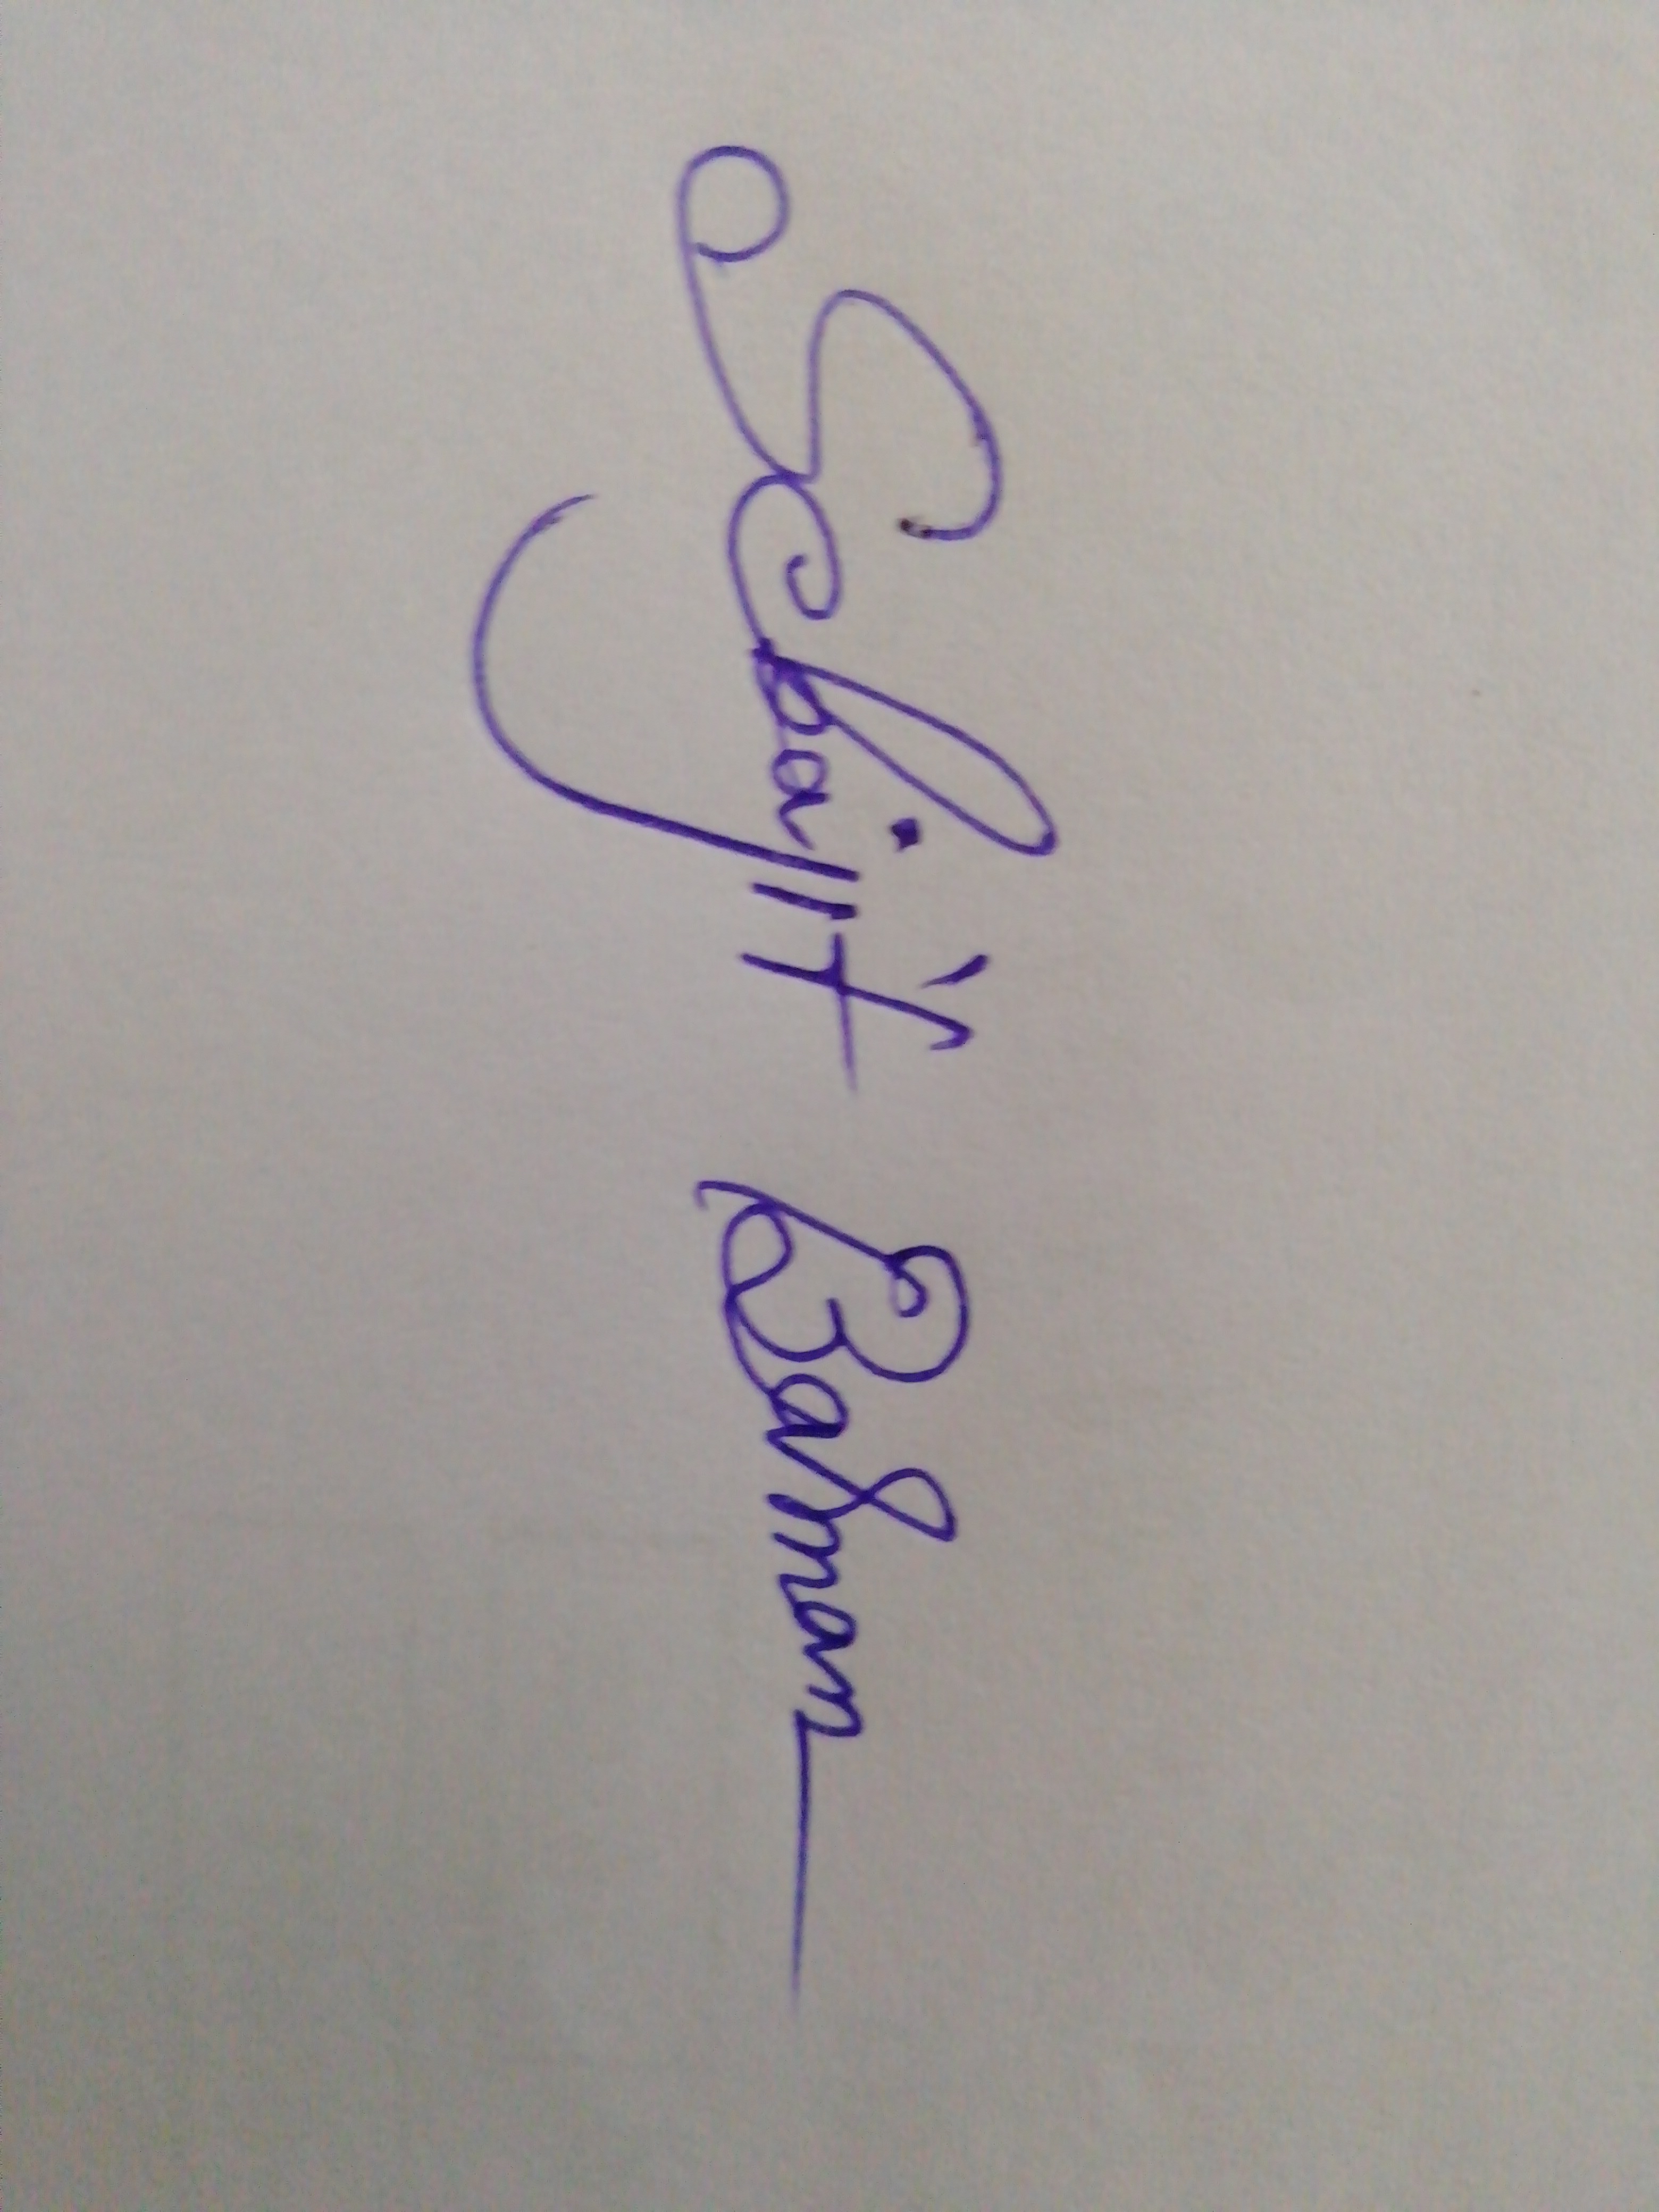 Sebajit Barman